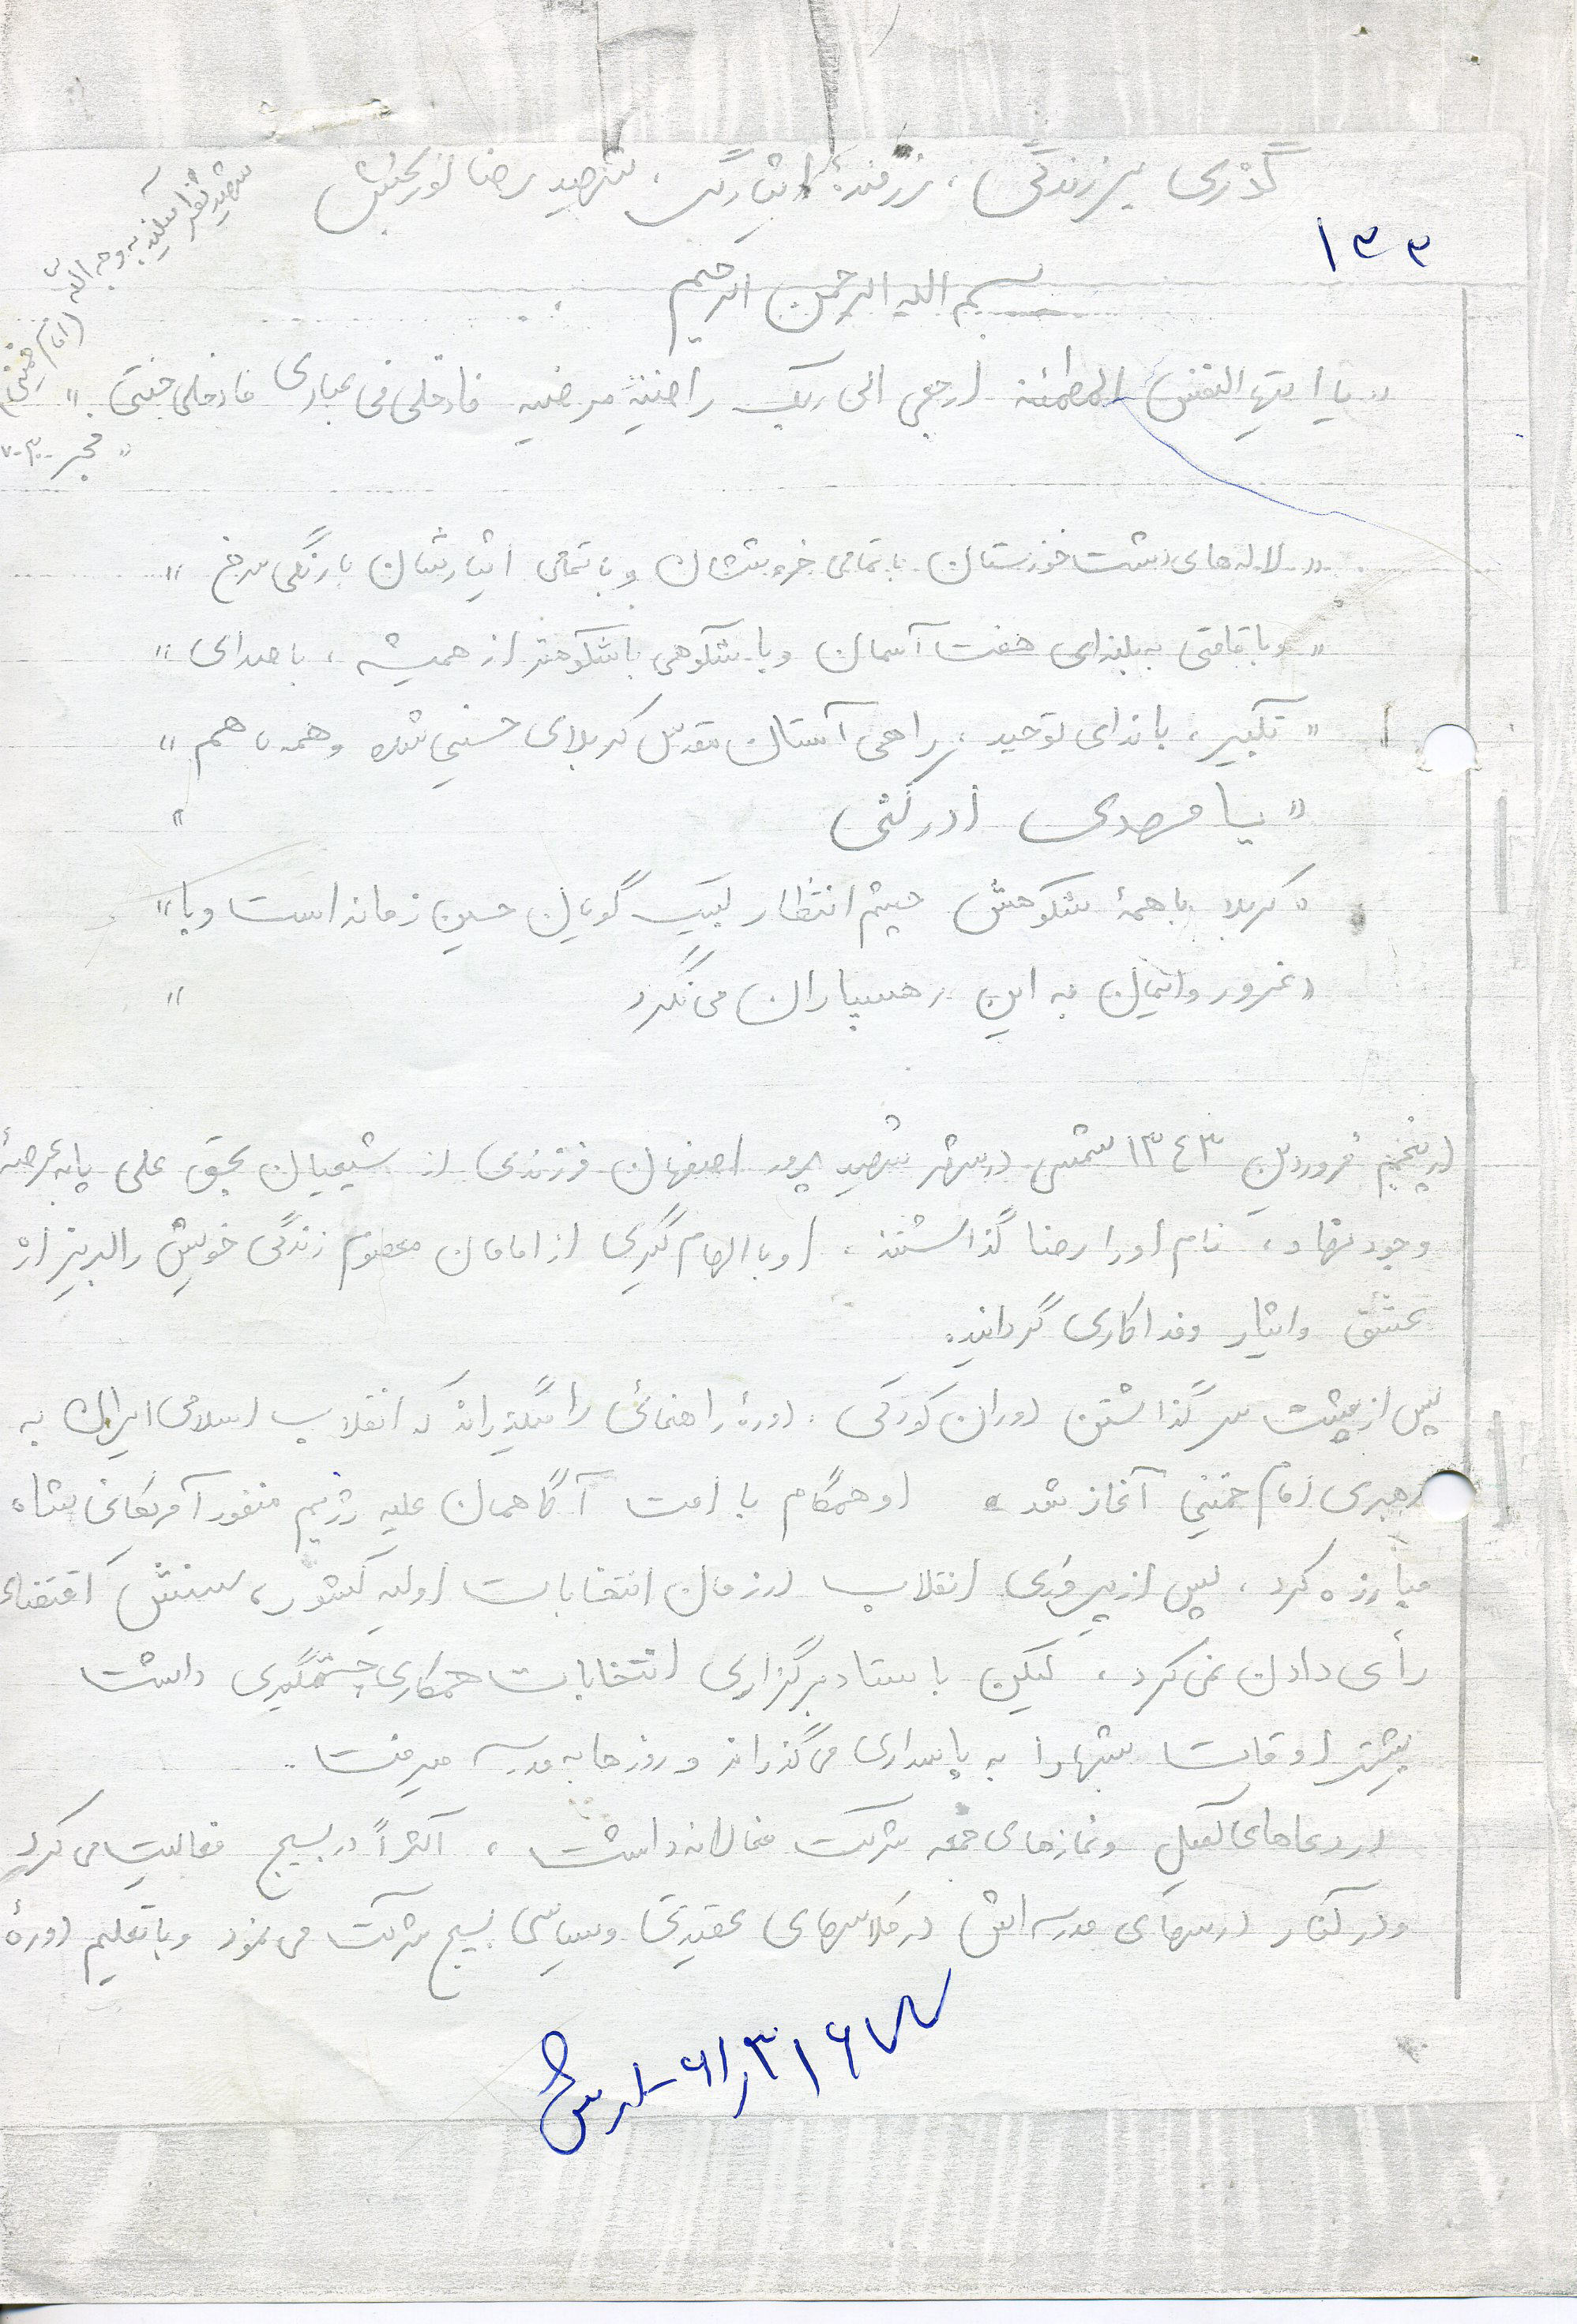 گذری بر زندگی، رزمندهٔ ایثارگر، شهید رضا نوربخش
شهید نظر میکند به وجه الله
(امام خمینی)
۱۳۳
بسم الله الرحمن الرحیم
«یا ایتها النفس المطمئنه ارجعی الی ربک راضیةً مرضیه فادخلی فی عبادی فادخلی جنتی.»
«فجر ۳۰-۲۷
«لاله‌های دشت خوزستان با تمامی خروششان و با تمامی ایثارشان با رنگی سرخ»
«و با قامتی به بلندای هفت آسمان و با شکوهی باشکوهتر از همیشه، با صدای»
«تکبیر، با ندای توحید، راهی آستان مقدس کربلای حسینی شده و همه با هم»
«یا مهدی ادرکنی»
«کربلا با همهٔ شکوهش چشم انتظار لبیک گویان حسین زمانه است و با»
«غرور و ایمان به این رهسپاران می‌نگرد»
در پنجم فروردین ۱۳۴۳ شمسی در شهر شهید پرور اصفهان فرزندی از شیعیان بحق علی پا به عرصهٔ
وجود نهاد، نام او را رضا گذاشتند، او با الهام گیری از امامان معصوم زندگی خویش را لبریز از
عشق و ایثار و فداکاری گردانید.
پس از پشت سر گذاشتن دوران کودکی، دورهٔ راهنمائی را میگذراند که انقلاب اسلامی ایران به
رهبری امام خمینی آغاز شد. او همگام با امت آگاهمان علیه رژیم منفور آمریکائی شاه
مبارزه کرد، پس از پیروزی انقلاب در زمان انتخابات اولیه کشور، سنش اقتضاء
رأی دادن نمی‌کرد، لیکن با ستاد برگزاری انتخابات همکاری چشمگیری داشت
بیشتر اوقات شبها را به پاسداری می‌گذراند و روزها به مدرسه میرفت.
در دعاهای کمیل و نمازهای جمعه شرکت فعالانه داشت، اکثراً در بسیج فعالیت می‌کرد
و در کنار درسهای مدرسه‌اش در کلاسهای عقیدتی و سیاسی بسیج شرکت می‌نمود و با تعلیم دورهٔ